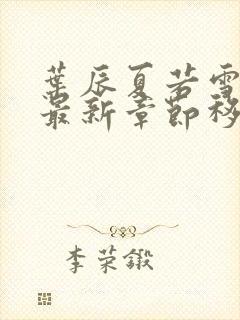 叶辰夏若雪
最新章节移
李荣锻